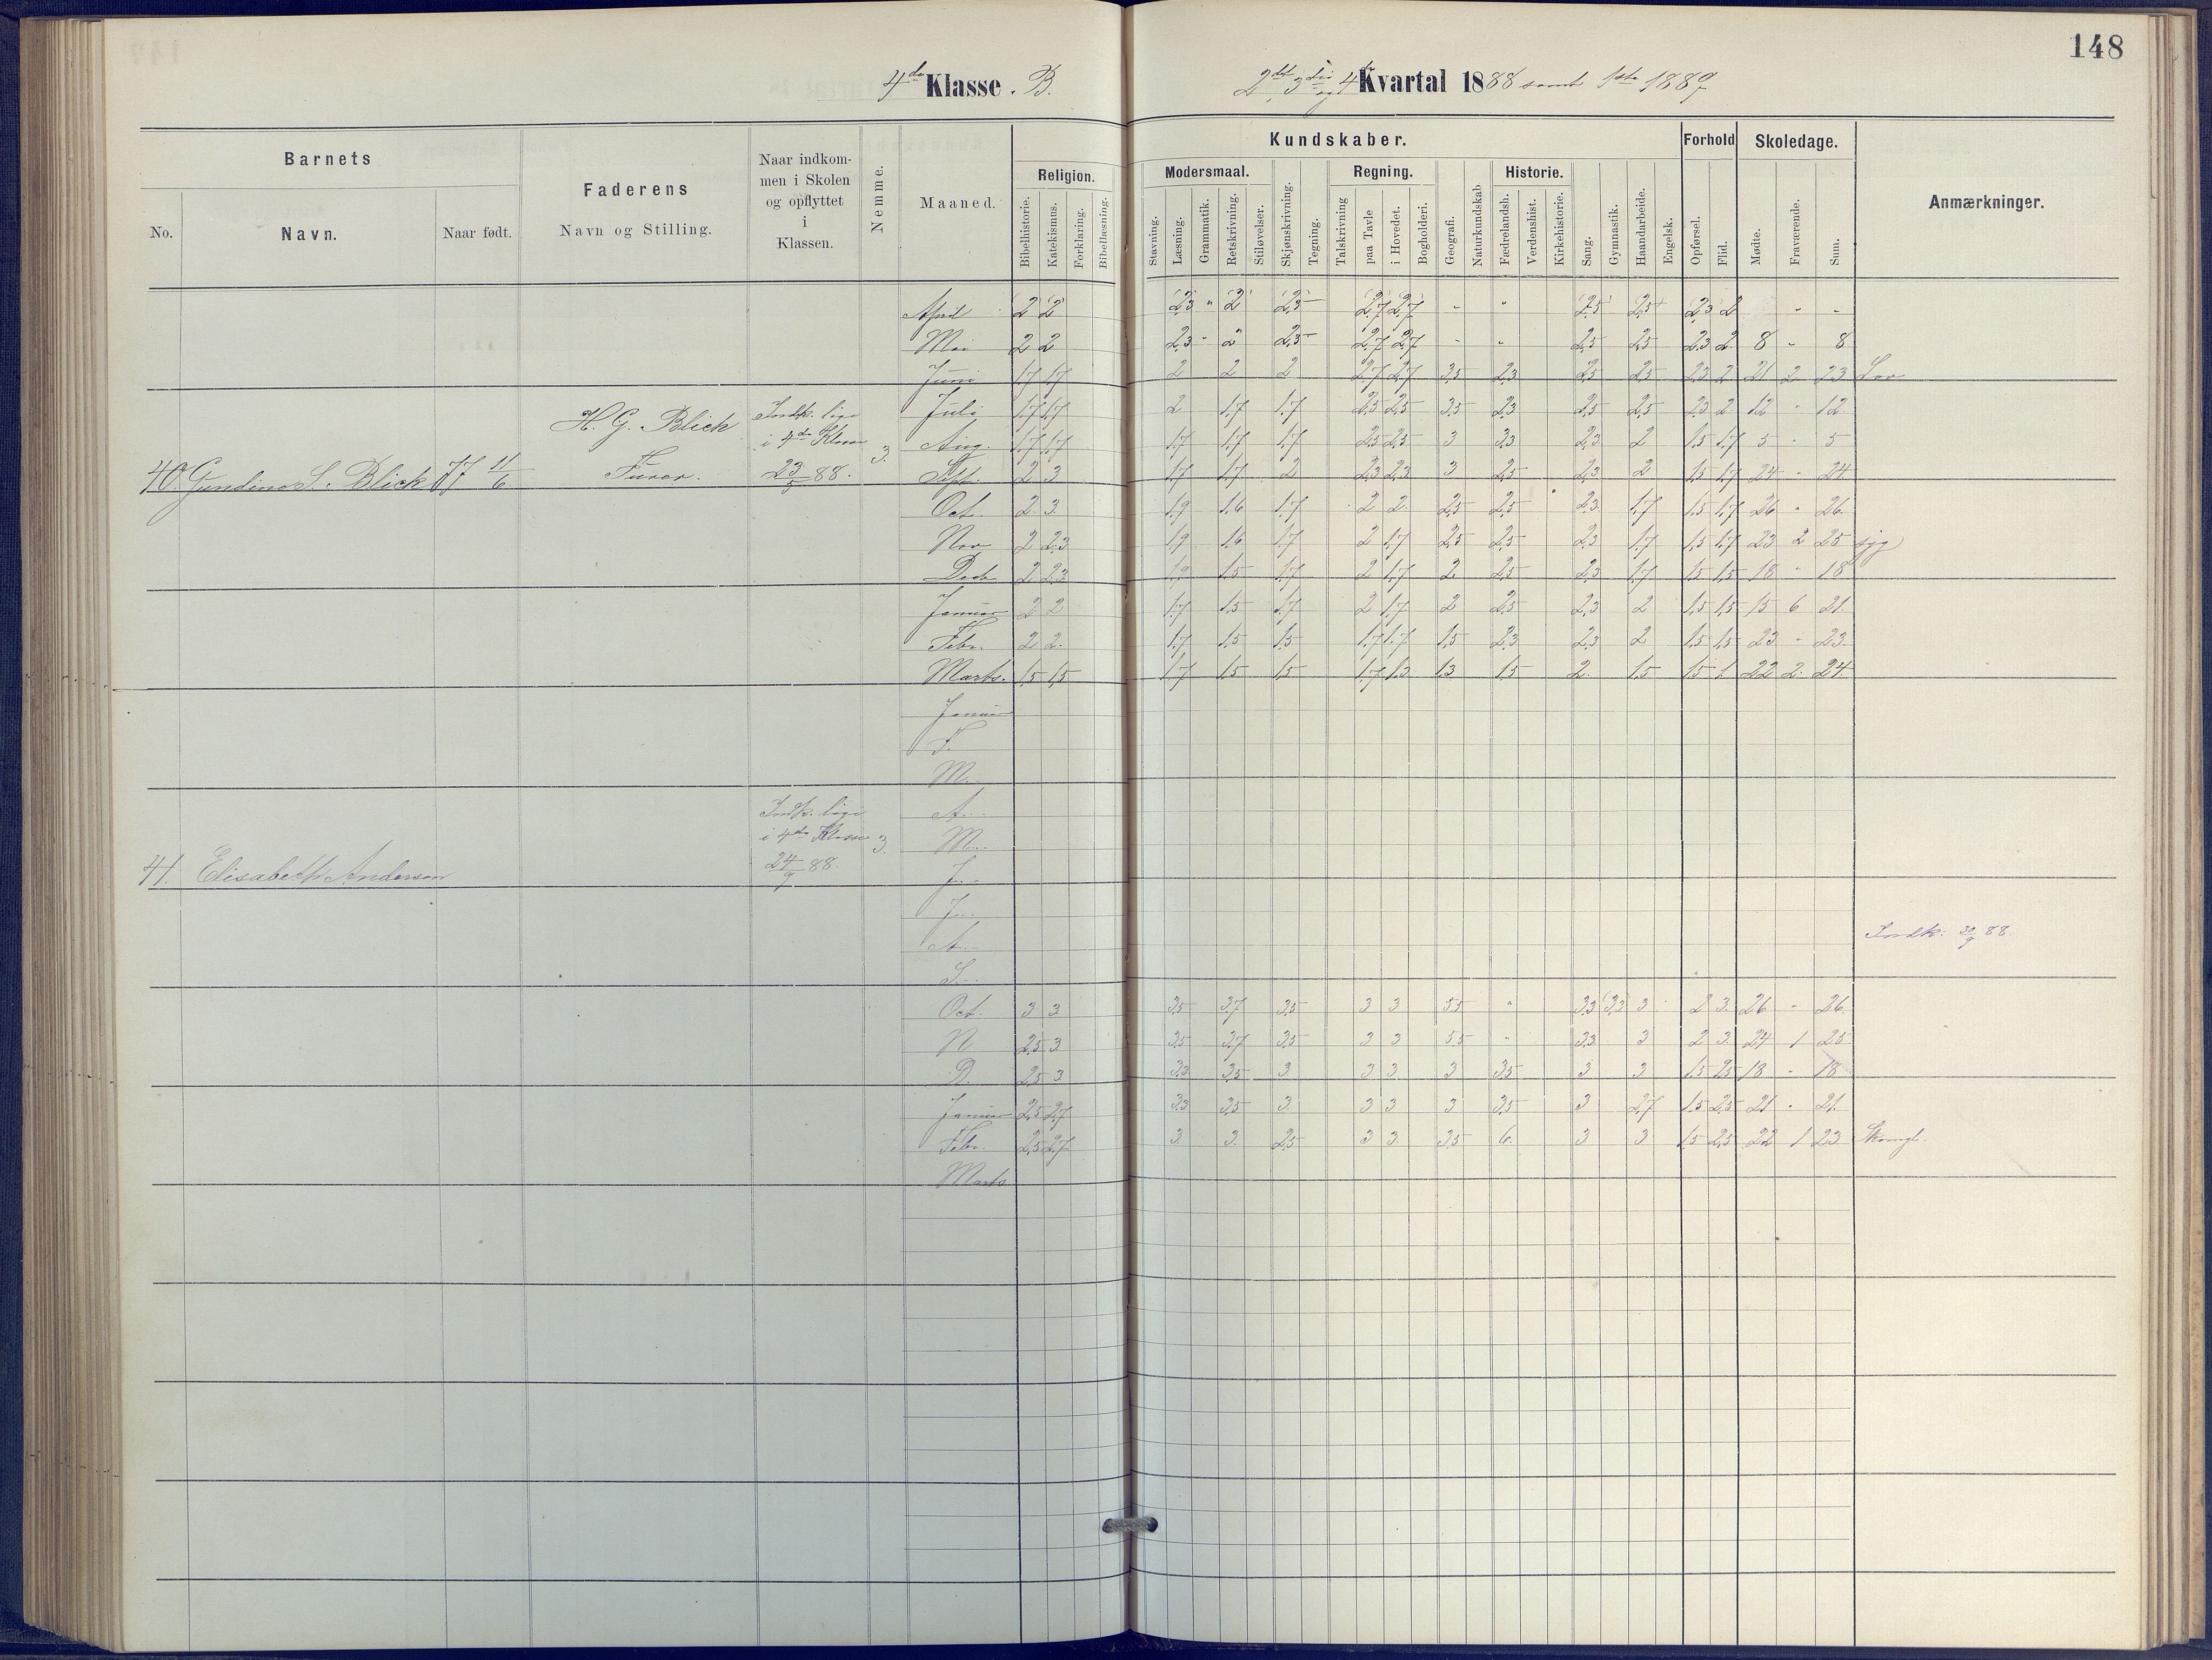 148
4de Klasse. B.
2det, 3die og 4de Kvartal 1888 samt 1ste 1889
Barnets
No.
Navn.
Naar født.
Faderens
Navn og Stilling.
Naar indkom-
men i Skolen
og opflyttet
i
Klassen.
Nemme.
Maaned.
Religion.
Bibelhistorie.
Katekismus.
Forklaring.
Bibellæsning.
Kundskaber.
Stavning.
Modersmaal.
Læsning.
Grammatik.
Retskrivning.
Stiløvelser.
Skjønskrivning.
Tegning.
Regning.
Talskrivning
paa Tavle
i Hovedet.
Bogholderi.
Geografi.
Naturkundskab.
Historie.
Fædrelandsh.
Verdenshist.
Kirkehistorie.
Sang.
Gymnastik.
Haandarbeide.
Engelsk.
Forhold
Opførsel.
Flid.
Skoledage.
Mødte.
Fraværende.
Sum.
Anmærkninger.
40. Gundine S. Blick 77 11/6
H. G. Blick
Furer.
Indk. lige
i 4de Klasse
23/5 88.
3.
April 2 2 2,3 " 2 2,5 2,7 2,7 - " 2,5 2,5 2,3 2 - -
Mai 2 2 2,3 - 2 2,5 2,7 2,7 - - 2,5 2,5 2,3 2 8 - 8
Juni 1,7 1,7 2 2 2 2,7 2,7 3,5 2,3 2,5 2,5 2,3 2 21 2 23 Lov
Juli 1,7 1,7 2 1,7 1,7 2,5 2,5 3,5 2,3 2,5 2,5 2,3 2 12 - 12
Aug. 1,7 1,7 1,7 1,7 1,7 2,5 2,5 3 3,3 2,3 2 1,5 1,7 5 - 5
Sept. 2 3 1,7 1,7 2 2,3 2,3 3 2,5 2,3 2 1,5 1,7 24 - 24
Oct. 2 3 1,9 1,6 1,7 2 2 2,5 2,5 2,3 1,7 1,5 1,7 26 - 26
Nov 2 2,3 1,9 1,6 1,7 2 1,7 2,5 2,5 2,3 1,7 1,5 1,7 23 2 25 syg
Decb 2 2,3 1,9 1,5 1,7 2 1,7 2 2,5 2,3 1,7 1,5 1,5 18 - 18
Januar 2 2 1,7 1,5 1,7 2 1,7 2 2,5 2,3 2 1,5 1,5 15 6 21
Febr. 2 2 1,7 1,5 1,5 1,7 1,7 1,5 2,3 2,3 2 1,5 1,5 23 - 23
Marts. 1,5 1,5 1,7 1,5 1,5 1,7 1,3 1,3 1,5 2 1,5 1,5 1 22 2 24
41. Elisabeth Andersen
Indk. lige
i 4de Klasse
24/9 88.
3.
Januar
F.
M.
A.
M.
J.
J.
A. Indk: 30/9 88.
S.
Oct. 3 3 3,5 3,7 3,5 3 3 5,5 " 3,3 (3,3) 3 2 3 26 - 26
N 2,5 3 3,5 3,7 3,5 3 3 5,5 - 3,3 3 2 3 24 1 25
D. 2,5 3 3,3 3,5 3 3 3 3 3,5 3 3 1,5 2,5 18 - 18
Januar 2,5 2,7 3,3 3,5 3 3 3 3 3,5 3 2,7 1,5 2,5 21 - 21
Febr. 2,5 2,7 3 3 2,5 3 3 3,5 6 3 3 1,5 2,5 22 1 23
Marts